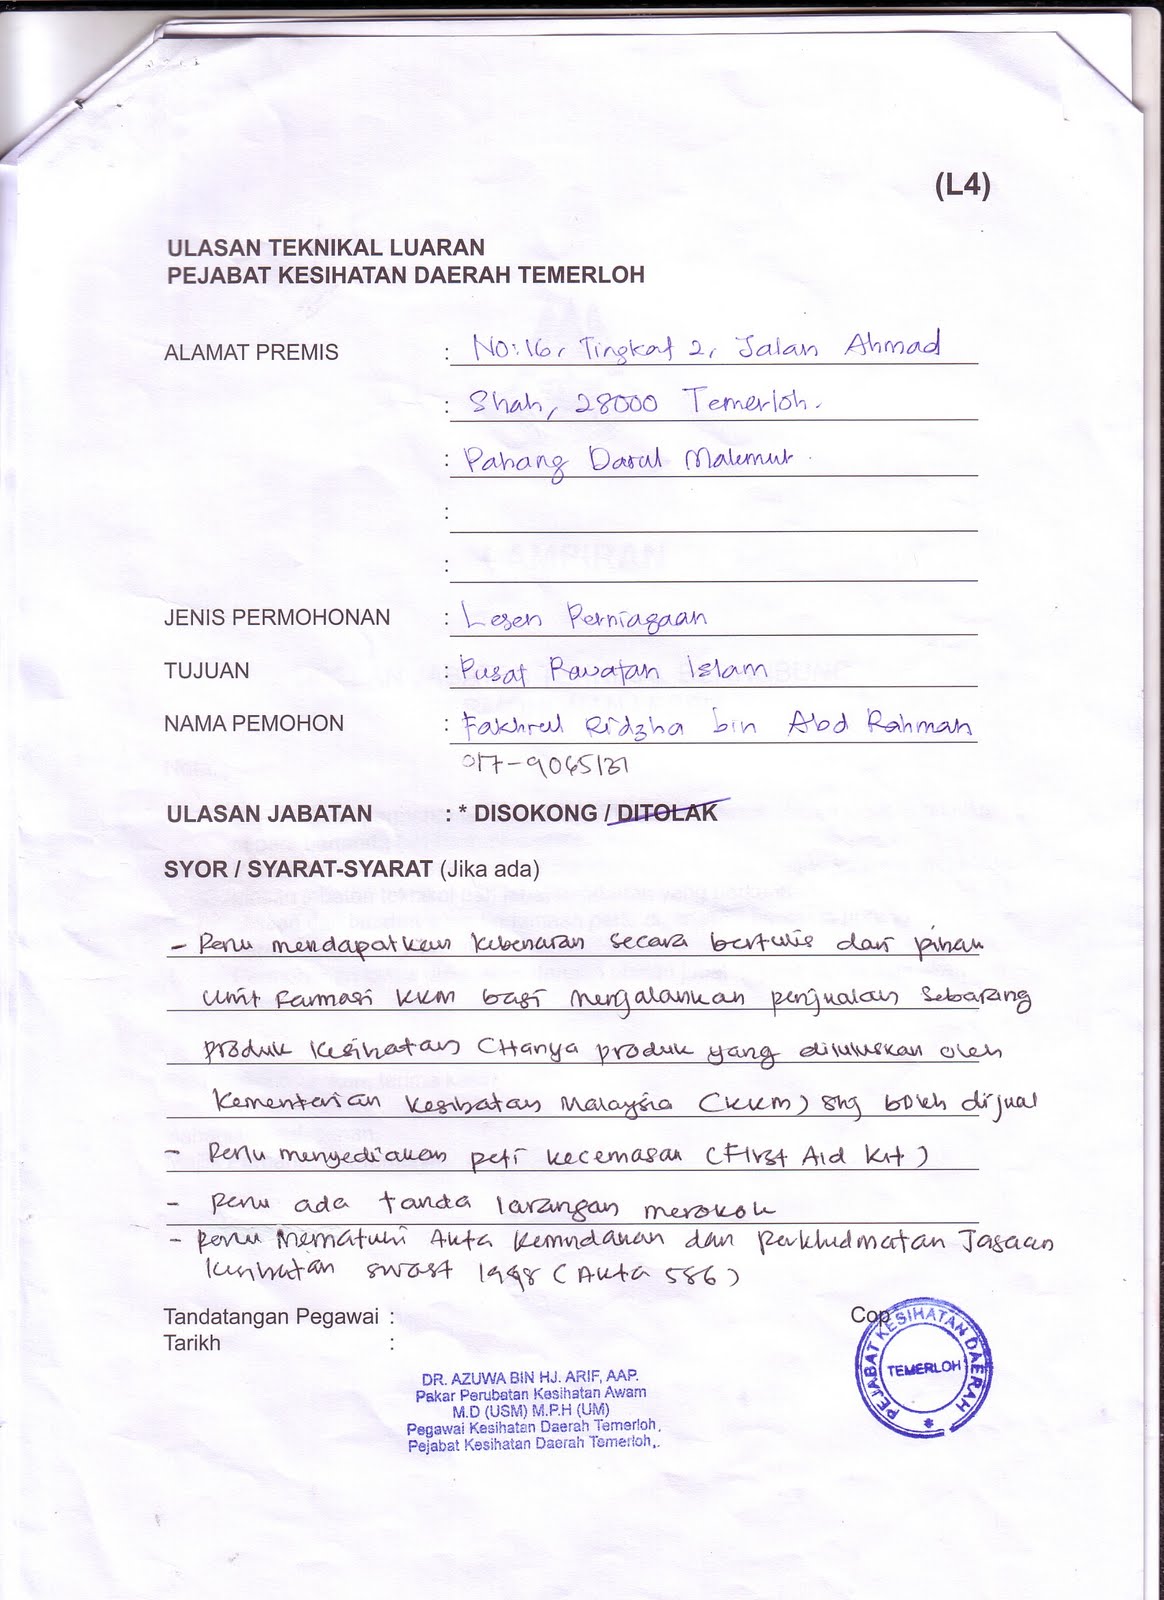 (L4)
ULASAN TEKNIKAL LUARAN
PEJABAT KESIHATAN DAERAH TEMERLOH
ALAMAT PREMIS : No:16, Tingkat 2, Jalan Ahmad
: Shah, 28000 Temerloh.
: Pahang Darul Makmur.
:
:
JENIS PERMOHONAN : Lesen Perniagaan
TUJUAN : Pusat Rawatan Islam
NAMA PEMOHON : Fakhrul Ridzha bin Abd Rahman
017-9065131
ULASAN JABATAN : * DISOKONG / DITOLAK
SYOR / SYARAT-SYARAT (Jika ada)
- Perlu mendapatkan kebenaran secara bertulis dari pihak
unit farmasi KKM bagi menjalankan penjualan sebarang
produk kesihatan (Hanya produk yang diluluskan oleh
Kementerian Kesihatan Malaysia (KKM) shg boleh dijual
- Perlu menyediakan peti kecemasan (First Aid Kit)
- Perlu ada tanda larangan merokok
- Perlu mematuhi Akta Kemudahan dan Perkhidmatan Jagaan
Kesihatan swast 1998 (Akta 586)
Tandatangan Pegawai :
Tarikh :
Cop
PEJABAT KESIHATAN DAERAH
TEMERLOH
*
DR. AZUWA BIN HJ. ARIF, AAP.
Pakar Perubatan Kesihatan Awam
M.D (USM) M.P.H (UM)
Pegawai Kesihatan Daerah Temerloh,
Pejabat Kesihatan Daerah Temerloh,.